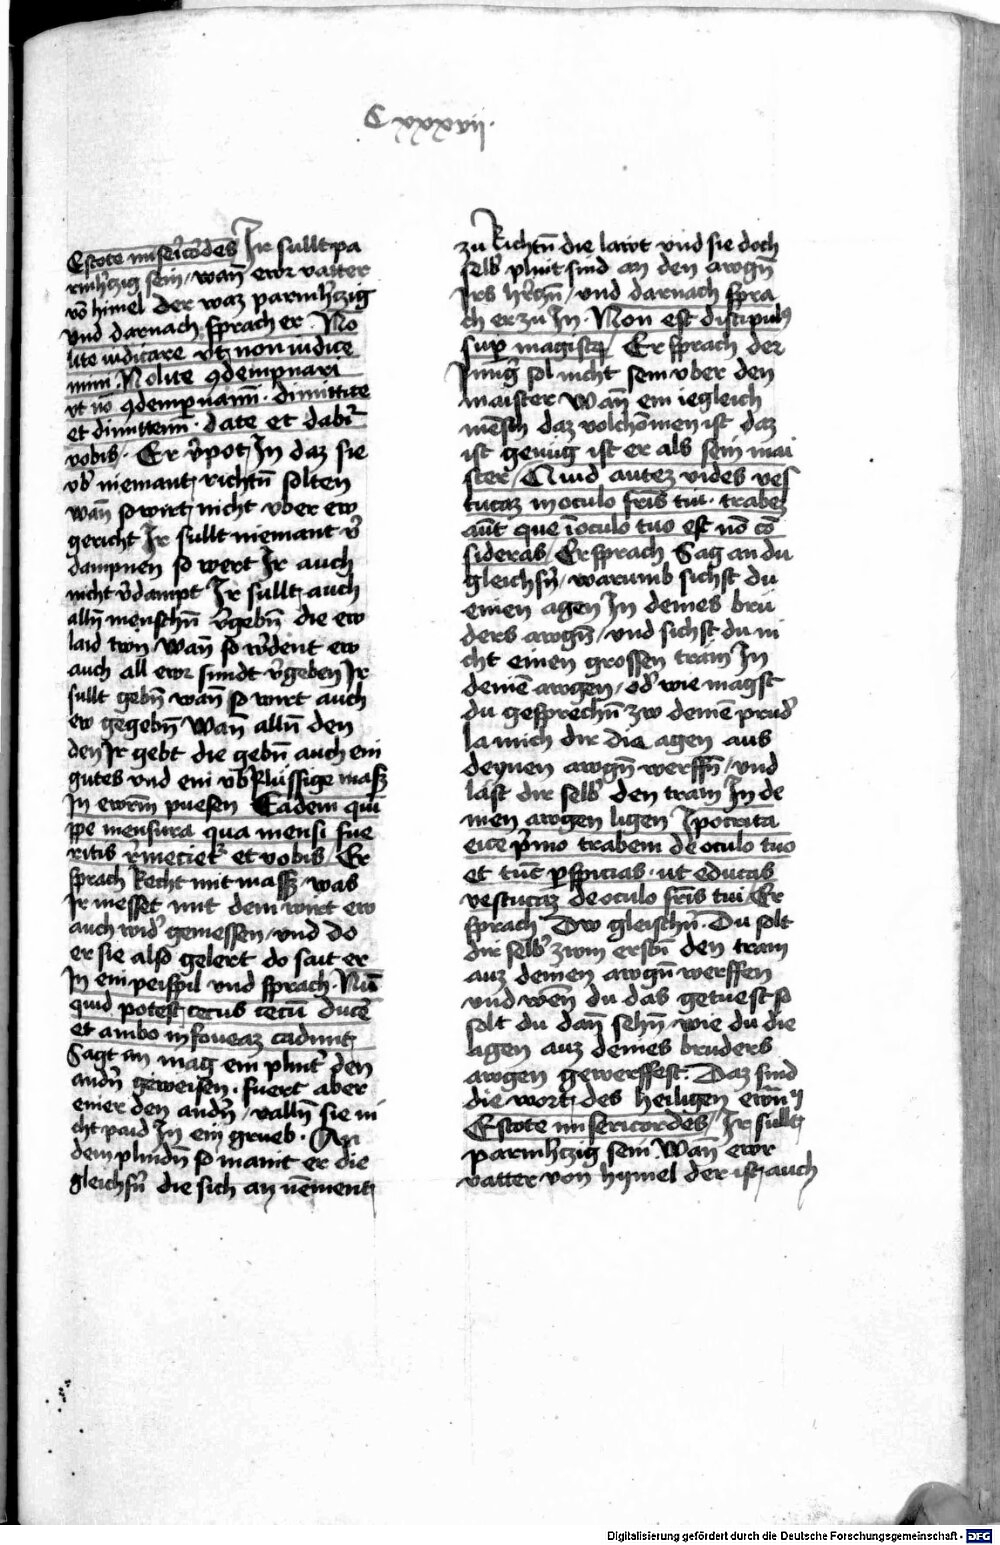 Cxxxvii.
Estote miẜicordes Ir sullt pa
rmh̕czig sein / wañ ewr vatter
võ himel der waz parmh̕czig
vnd darnach sprach er. No
lite iudicare vt non iudice
mini. Nolite ꝯdempnari
vt nõ ꝯdempnamĩ. dimittite
et dimittemĩ. date et dabit̕
vobis. Er v̕pot In daz sie
vb̕ niemant richtñ solten
wañ so wirt nicht vber ew
gericht Ir sullt niemant v̕
dampnen so wert Ir auch
nicht v̕dampt Ir sullt auch
alln̄ menschñ v̕gebñ die ew
laid twn / wañ so w̕dent ew
auch all ewr sundt v̕geben Ir
sullt gebñ wañ so wirt auch
ew gegebñ Wañ alln̄ den
den Ir gebt die gebñ auch ein
gutes vnd ein vb̕flussige mass
In ewrm̄ puesen Eadem qui
ppe mensura qua mensi fue
ritis r̕meciet̕ et vobis / Er
sprach Recht mit mass / was
Ir messet mit dem wirt ew
auch wid̕ gemessen / vnd do
er sie also gelert do sait er
In ein peispil vnd sprach. Nũ
quid potest cecus cecũ duce̕
et ambo in foueaz cadunt
Sagt an mag ein plint̕ den
andn̕ geweisen. fuert aber
einer den andn̕ / vallñ sie ni
cht paid In ein grueb. An
dem plindñ so maint er die
gleichsn̕ die sich an nement
zu Richtñ die lawt vnd sie doch
selb̕ plint sind an den awgñ
Irs h̕rczñ / vnd darnach spra
ch er zu In. Non est discipulꝰ
sup̲ magistr̄ / Er sprach der
Iung̕ sol nicht sein vber den
maister Wañ ein iegleich
mẽsch daz volchõmen ist daz
ist genug ist er als sein mai
ster / Quid autez vides ves
tucaz in oculo fr̃is tui. trabez
aũt que ĩ oculo tuo est nõ cõ
sideras / Er sprach Sag an du
gleichsn̕ / warumb sichst du
einen agen In deines bru
ders awgñ / vnd sichst du ni
cht einen grossen tram In
deinẽ awgen / od̕ wie magst
du gesprechñ zw deinẽ prud̕
la mich dir die agen aus
deynen awgñ werffñ / vnd
last dir selb̕ den tram In de
inen awgen ligen Ipocrita
eice p̕mo trabem de oculo tuo
et tũc ꝑspicias. vt educas
vestucaz de oculo fr̃is tui / Er
sprach Dw gleischn̕. Du solt
dir selb̕ zwm erstñ den tram
auz deinen awgñ werffen
vnd wẽn du das getuest so
solt du dañ sehñ / wie du die
agen auz deines bruders
awgen gewerffest. Daz sind
die wort des heiligen ewñ
Estote misericordes / Ir sullt
parmh̕czig sein. Wañ ewr
vatter von hymel der ist auch
Digitalisierung gefördert durch die Deutsche Forschungsgemeinschaft - DFG